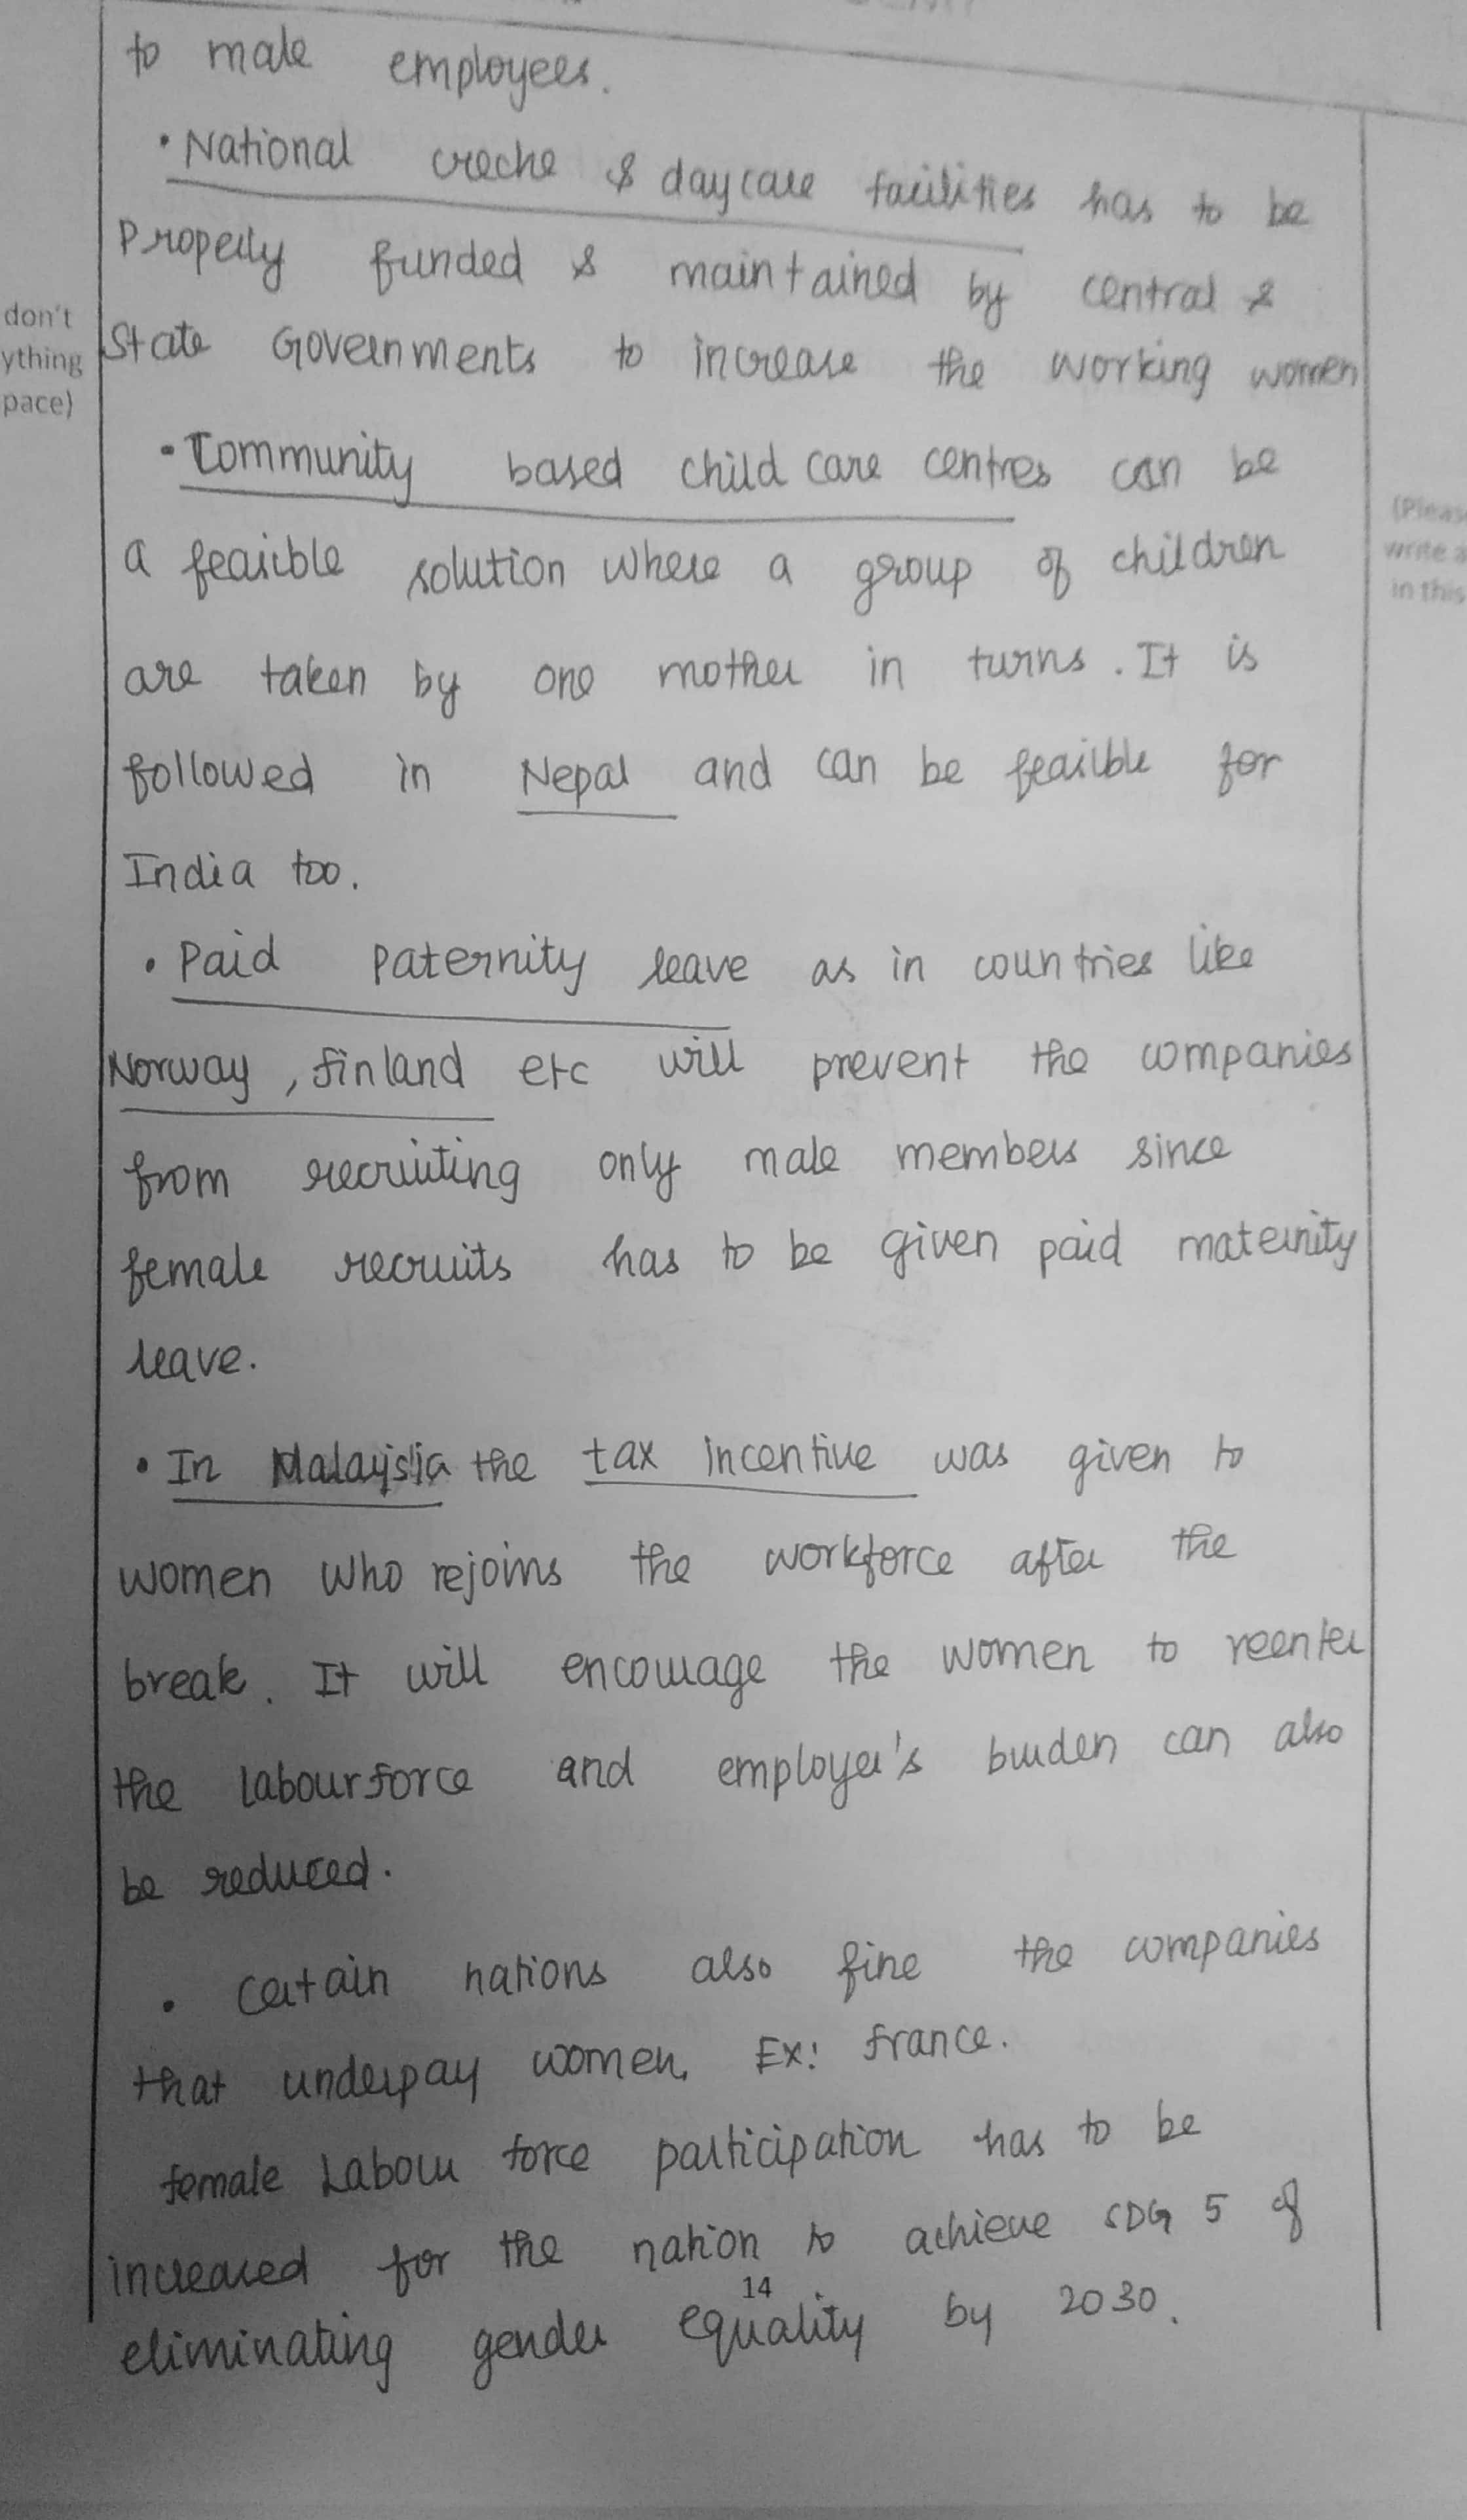 to male employees.
• National creche & daycare facilities has to be
Properly funded & maintained by central &
State Governments to increase the working women
• Community based child care centres can be
a feasible solution where a group of children
are taken by one mother in turns. It is
followed in Nepal and can be feasible for
India too.
• Paid paternity leave as in countries like
Norway, Finland etc will prevent the companies
from recruiting only male members since
female recruits has to be given paid maternity
leave.
• In Malaysia the tax incentive was given to
women who rejoins the workforce after the
break. It will encourage the women to reenter
the labourforce and employer's burden can also
be reduced.
• Certain nations also fine the companies
that underpay women. Ex: France.
Female Labour force participation has to be
increased for the nation to achieve SDG 5 of
eliminating gender equality by 2030.
14
don't
ything
pace)
(Pleas
write a
in this